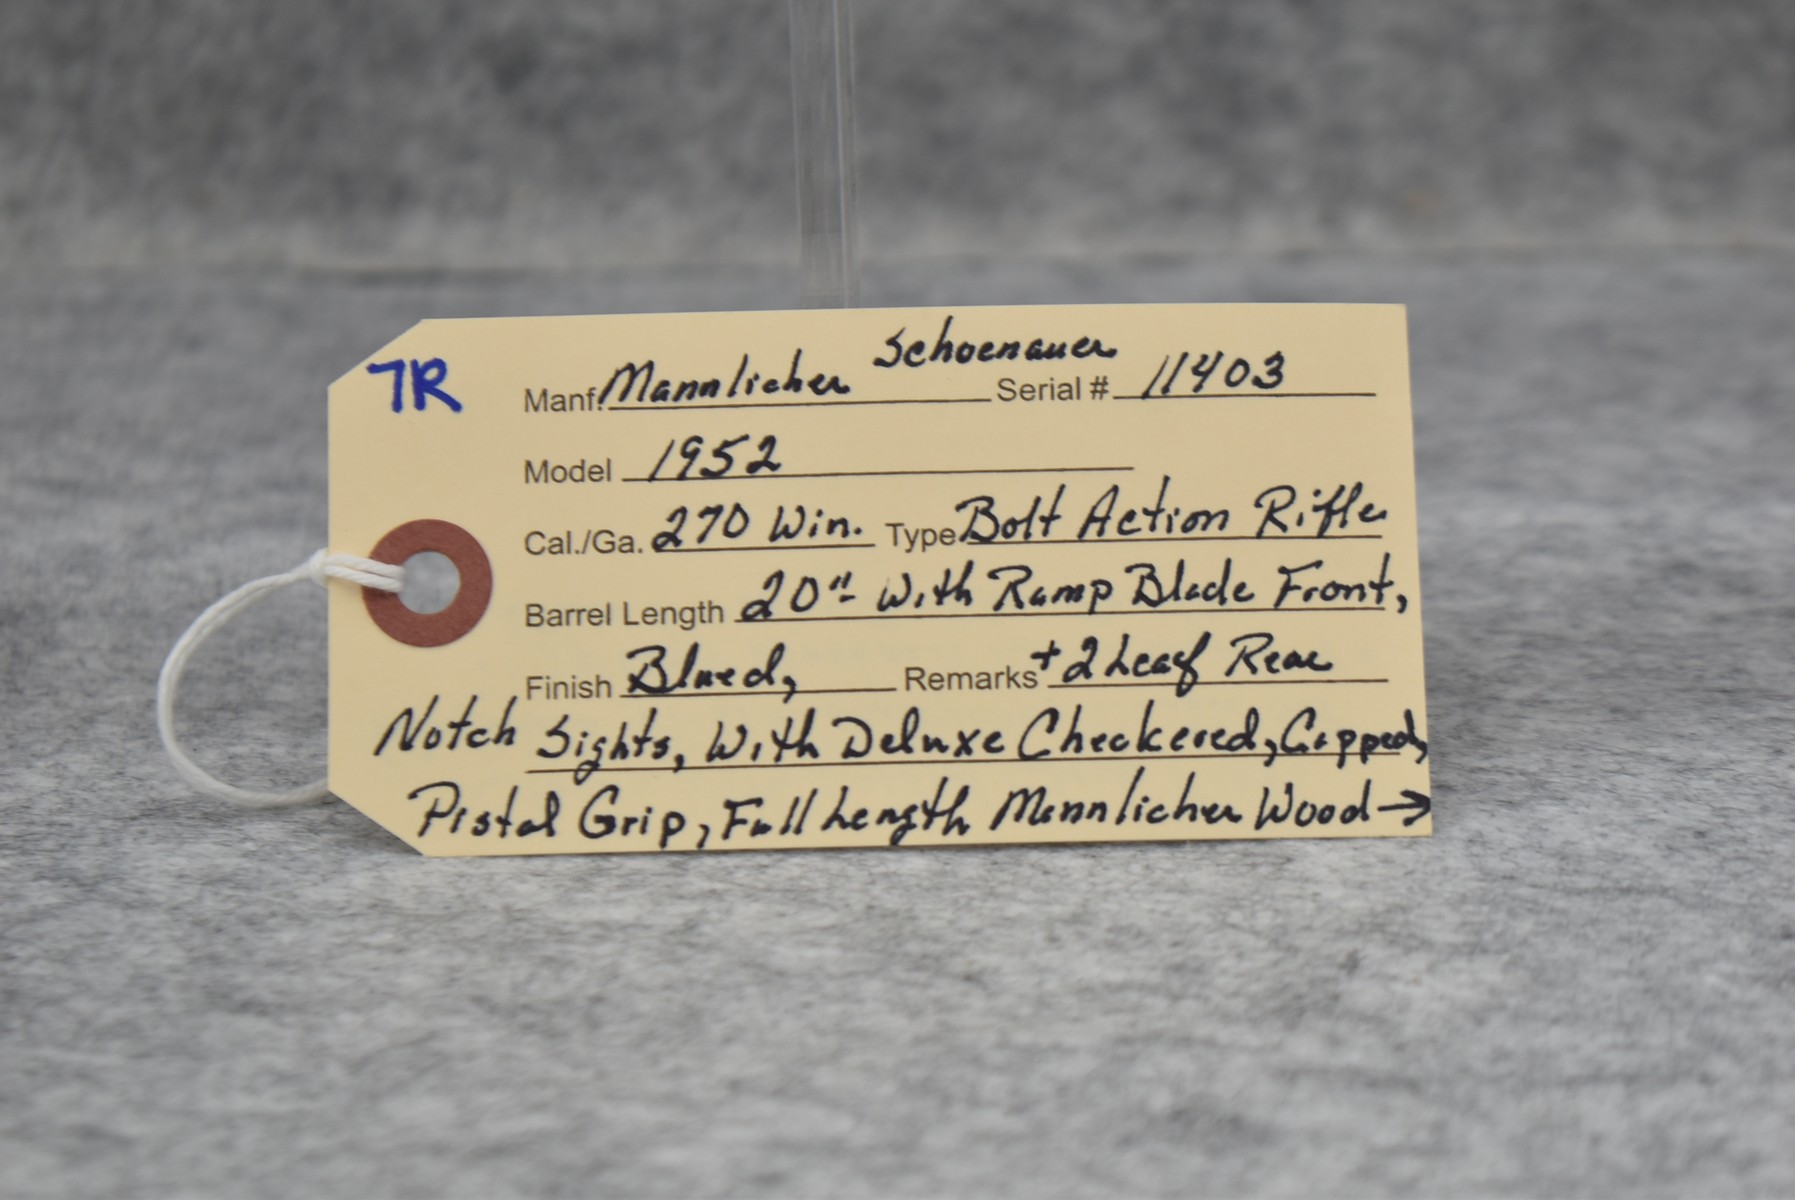 7R
Manf. Mannlicher Schoenauer Serial # 11403
Model 1952
Cal./Ga. 270 Win. Type Bolt Action Rifle
Barrel Length 20" With Ramp Blade Front,
Finish Blued, Remarks + 2 Leaf Rear
Notch Sights, With Deluxe Checkered, Capped,
Pistol Grip, Full Length Mannlicher Wood →